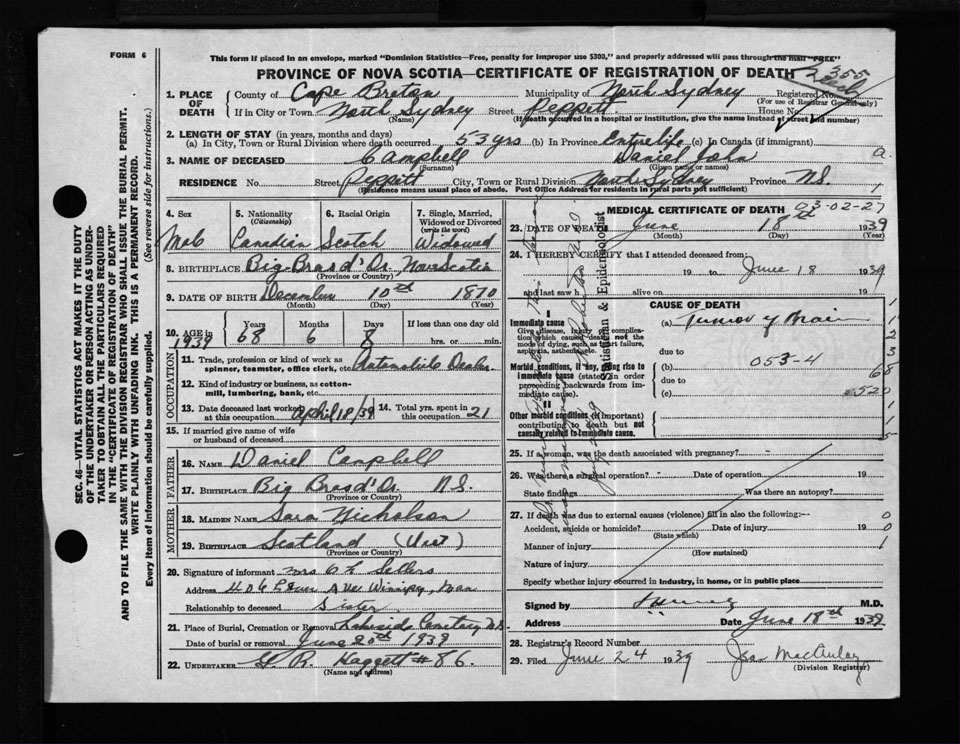 FORM 6
This form if placed in an envelope, marked "Dominion Statistics—Free, penalty for improper use $300," and properly addressed will pass through the mail "FREE"
PROVINCE OF NOVA SCOTIA—CERTIFICATE OF REGISTRATION OF DEATH
355
1. PLACE OF DEATH County of Cape Breton Municipality of North Sydney Registered No.
(For use of Registrar General only)
If in City or Town North Sydney Street Peppitt House No.
(Name) (If death occurred in a hospital or institution, give the name instead of street and number)
2. LENGTH OF STAY (in years, months and days)
(a) In City, Town or Rural Division where death occurred 53 yrs (b) In Province Entire life (c) In Canada (if immigrant)
3. NAME OF DECEASED Campbell Daniel John
(Surname) (Given name or names)
RESIDENCE No. Street Peppitt City, Town or Rural Division North Sydney Province N.S.
(Residence means usual place of abode. Post Office Address for residents in rural parts not sufficient)
4. Sex Male
5. Nationality (Citizenship) Canadian
6. Racial Origin Scotch
7. Single, Married, Widowed or Divorced (write the word) Widowed
8. BIRTHPLACE Big Bras d'Or Nova Scotia
(Province or Country)
9. DATE OF BIRTH December 10th 1870
(Month) (Day) (Year)
10. AGE in Years Months Days If less than one day old
1939 68 6 8 hrs. or min.
OCCUPATION
11. Trade, profession or kind of work as spinner, teamster, office clerk, etc. Automobile Dealer
12. Kind of industry or business, as cotton-mill, lumbering, bank, etc.
13. Date deceased last worked at this occupation April 18/39 14. Total yrs. spent in this occupation 21
15. If married give name of wife or husband of deceased
FATHER
16. NAME Daniel Campbell
17. BIRTHPLACE Big Bras d'Or N.S.
(Province or Country)
MOTHER
18. MAIDEN NAME Sara Nicholson
19. BIRTHPLACE Scotland (Uist)
(Province or Country)
20. Signature of informant Mrs Sellers
Address 406 Ave Winnipeg, Man
Relationship to deceased Sister
21. Place of Burial, Cremation or Removal Lakeside Cemetery N.S.
Date of burial or removal June 20th 1939
22. UNDERTAKER R. Haggett #86.
(Name and address)
MEDICAL CERTIFICATE OF DEATH 03-02-27
23. DATE OF DEATH June 18th 1939
(Month) (Day) (Year)
24. I HEREBY CERTIFY that I attended deceased from:
19 to June 18 1939
and last saw h alive on 19
CAUSE OF DEATH
I
Immediate cause
Give disease, injury or complication which caused death not the mode of dying, such as heart failure, asphyxia, asthenia, etc.
(a) Tumor of Brain
due to
Morbid conditions, if any, giving rise to immediate cause (stated in order proceeding backwards from immediate cause).
(b) 053-4
due to
(c)
II
Other morbid conditions (if important) contributing to death but not causally related to immediate cause.
Statistician & Epidemiologist
25. If a woman, was the death associated with pregnancy?
26. Was there a surgical operation? Date of operation 19
State findings Was there an autopsy?
27. If death was due to external causes (violence) fill in also the following:—
Accident, suicide or homicide? Date of injury 19
(State which)
Manner of injury
(How sustained)
Nature of injury
Specify whether injury occurred in industry, in home, or in public place
Signed by M.D.
Address Date June 18th 1939
28. Registrar's Record Number
29. Filed June 24 1939 MacAulay
(Division Registrar)
SEC. 46—VITAL STATISTICS ACT MAKES IT THE DUTY
OF THE UNDERTAKER OR PERSON ACTING AS UNDERTAKER TO OBTAIN ALL THE PARTICULARS REQUIRED
IN THE "CERTIFICATE OF REGISTRATION OF DEATH"
AND TO FILE THE SAME WITH THE DIVISION REGISTRAR WHO SHALL ISSUE THE BURIAL PERMIT.
WRITE PLAINLY WITH UNFADING INK. THIS IS A PERMANENT RECORD.
Every item of information should be carefully supplied. (See reverse side for instructions.)